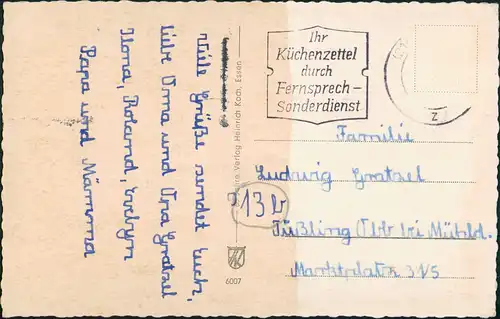 Viele Grüße sendet Euch,
liebe Oma und Opa Gratzel
Ilona, Roland, Evelyn
Papa und Mamma
Verlag Heinrich Koch, Essen
6007
Ihr
Küchenzettel
durch
Fernsprech-
Sonderdienst
z
Familie
Ludwig Gratzel
13b
Tüßling Obb bei Mühld.
Marktplatz 315